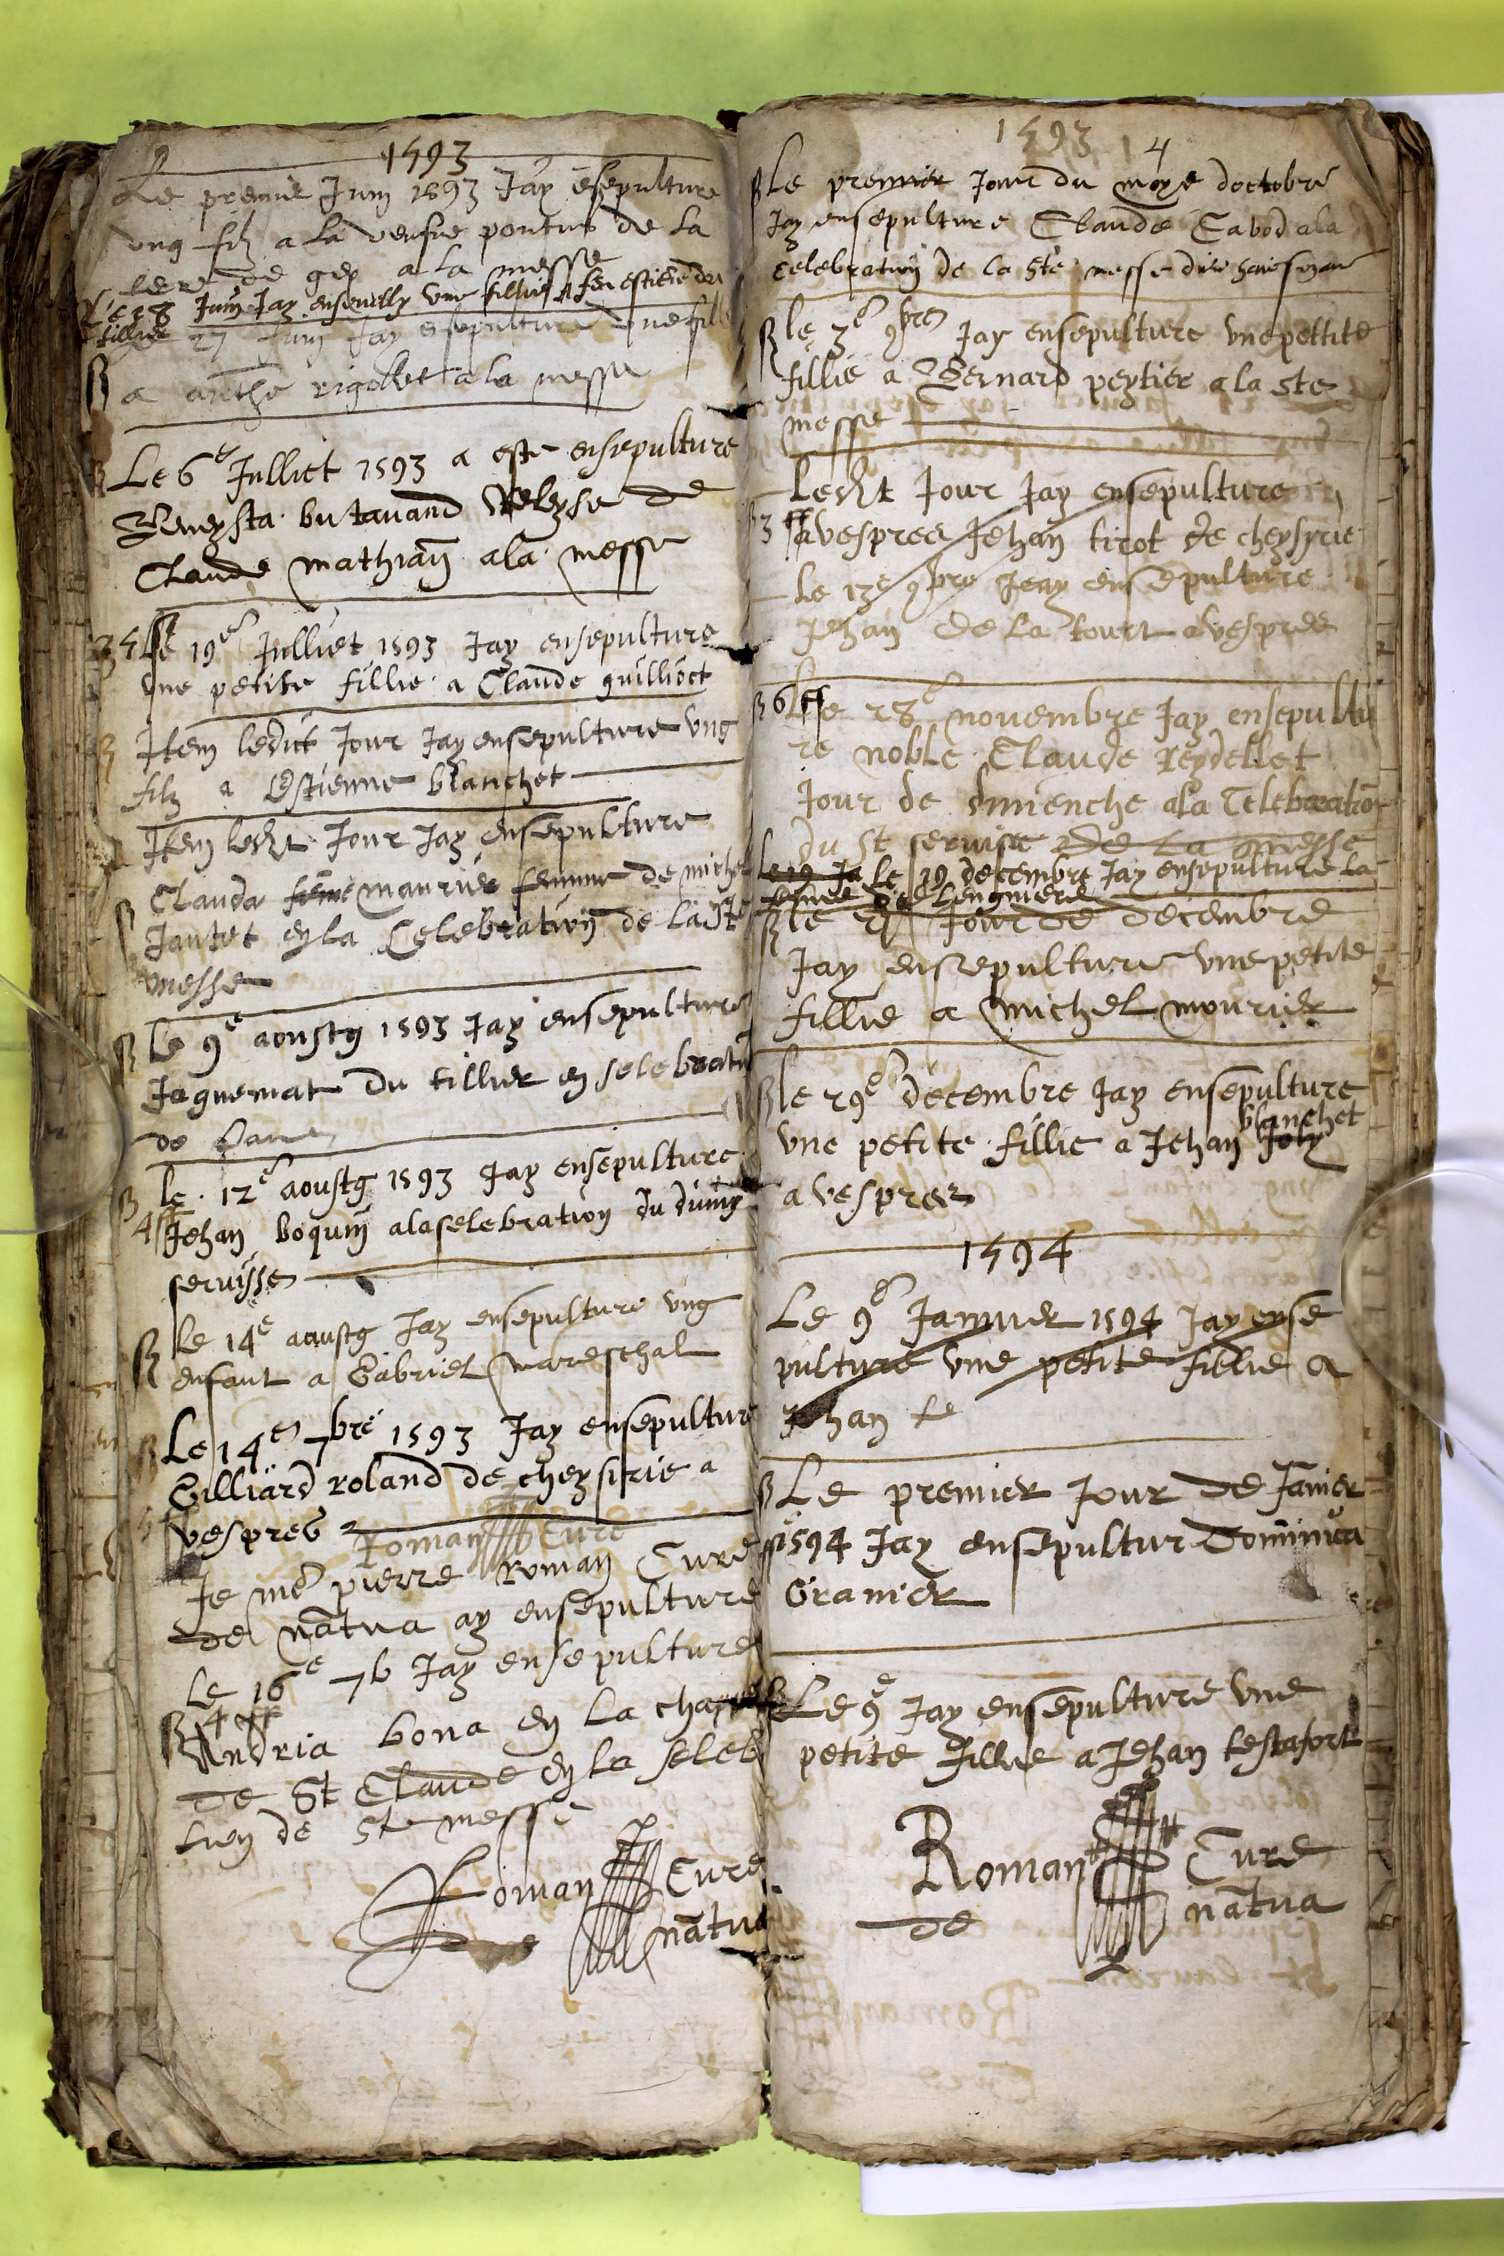 1593
Le premie Juin 1593 Jay esepulture
ung filz a la veufue pontus de la
a la messe
Le 28 Juin Jay enseuelly une fillie a
fillie 27 Juin Jay esepulture une fille
a anthe rigollet a la messe
Le 6e Julliet 1593 a este ensepulture
butauand de
Claude mathian a la messe
Le 19e Julliet 1593 Jay ensepulture
une petite fillie a Claude guilliot
Item ledict Jour Jay ensepulture ung
filz a Estienne blanchet
Item ledit Jour Jay ensepulture
Clauda feme maurier femme de michel
Jantet en la Celebration de la ste
messe
Le 9e aoustz 1593 Jay ensepulture
Jaquemat du tillier en selebratio
de
le 12e aoustz 1593 Jay ensepulture
Jehan boquin a la selebration du diuin
seruisse
le 14e aoustz Jay ensepulture ung
enfant a Gabriel mareschal
Le 14e 7bre 1593 Jay ensepulture
Gilliard roland de cheysirie a
vespres
Roman Cure
Je mre pierre Roman Cure
de natua ay ensepulture
Le 16e 7b Jay ensepulture
Andria bona en la chappelle
de St Claude en la seleb
tion de Ste messe
Roman Cure
de natua
1593
4
Le premier Jour du moys doctobre
Jay ensepulture Claude Cabod a la
celebration de la Ste messe dite
le 3e 9bre Jay ensepulture une pettite
fillie a Bernard peytier a la Ste
messe
Ledit Jour Jay ensepulture
a vespres Jehan tirot de cheysyrie
Le 13e 9bre Jeay ensepulture
Jehan de la tourt a vespres
Le 28e novembre Jay ensepultu
re noble Claude Reydellet
Jour de dimenche a la Celebration
du St seruise de la messe
Le 19 Ja Le 19 decembre Jay ensepulture la
femme de
le Jour de decembre
Jay ensepulture une petite
fillie a michel mourier
le 29e decembre Jay ensepulture
blanchet
une petite fillie a Jehan Joly
a vespres
1594
Le 9e Januier 1594 Jay ense
pulture une petite fillie a
Jehan te
Le premier Jour de Janier
1594 Jay ensepultur Dominica
Granier
Le 9e Jay ensepulture une
petite fillie a Jehan testafort
Roman Cure
de natua